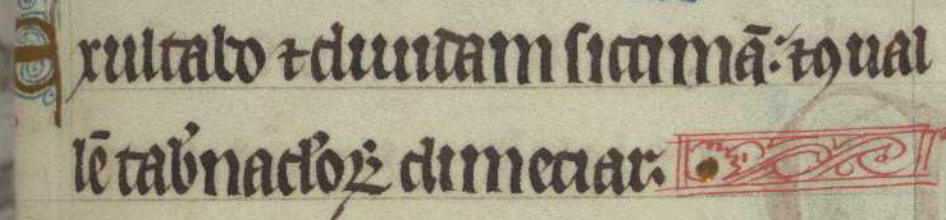 Exultabo ⁊ diuidam siccimā: ⁊ ꝯual
lē tab̾nacl̾oꝝ dimeciar.